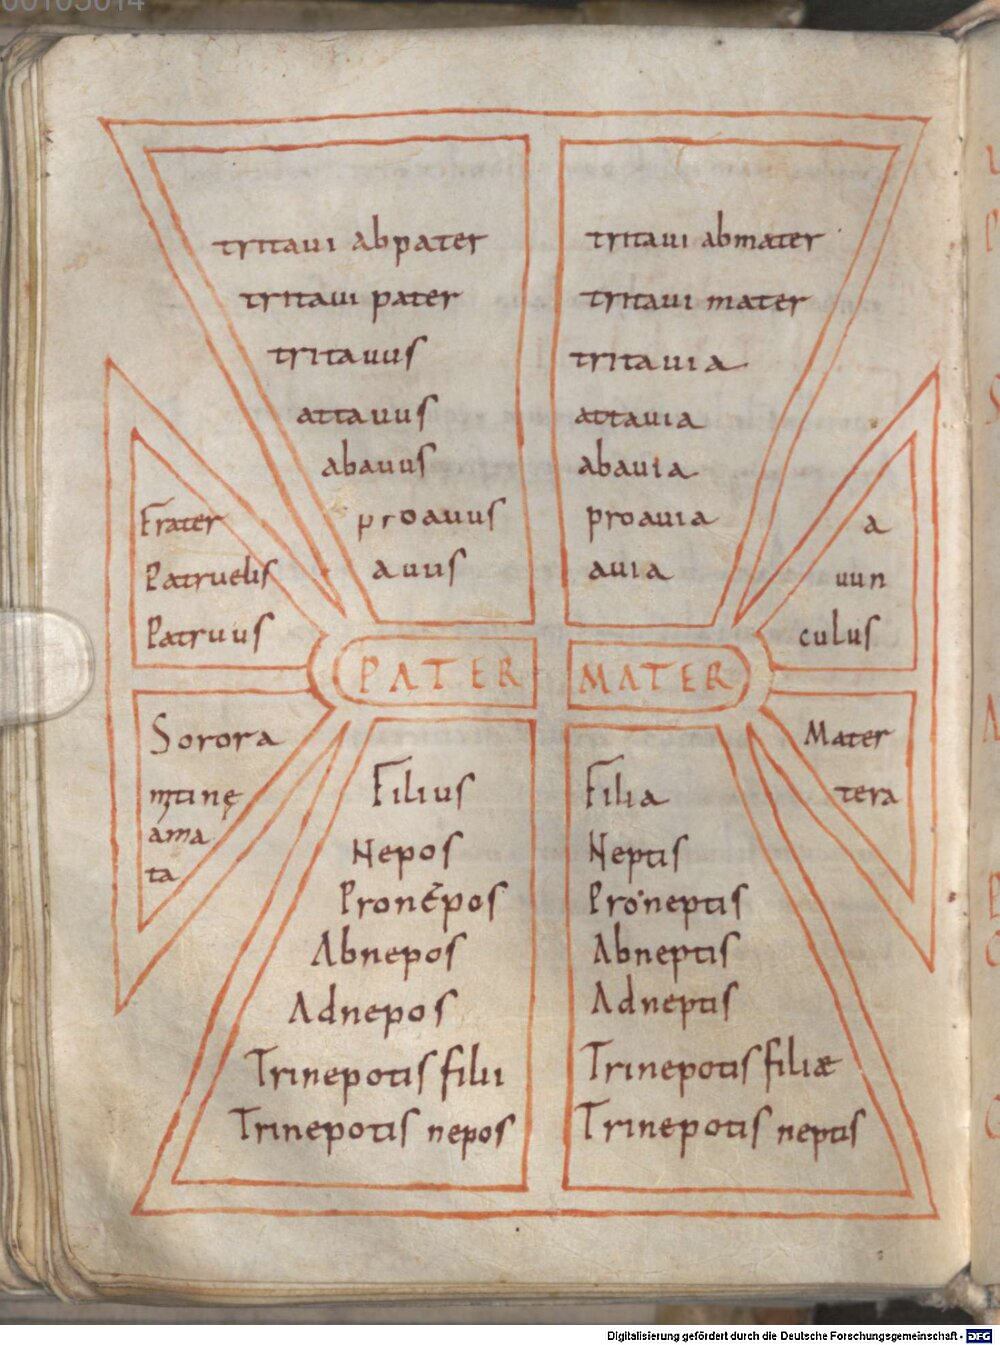 00105014
tritaui abpater
tritaui pater
tritauus
attauus
abauus
proauus
auus
tritaui abmater
tritaui mater
tritauia
attauia
abauia
proauia
auia
Frater
Patruelis
Patruus
a
uun
culus
PATER
MATER
Sorora
ama
ta
Mater
tera
Filius
Nepos
Pronepos
Abnepos
Adnepos
Trinepotis filii
Trinepotis nepos
Filia
Neptis
Proneptis
Abneptis
Adneptis
Trinepotis filiæ
Trinepotis neptis
Digitalisierung gefördert durch die Deutsche Forschungsgemeinschaft - DFG